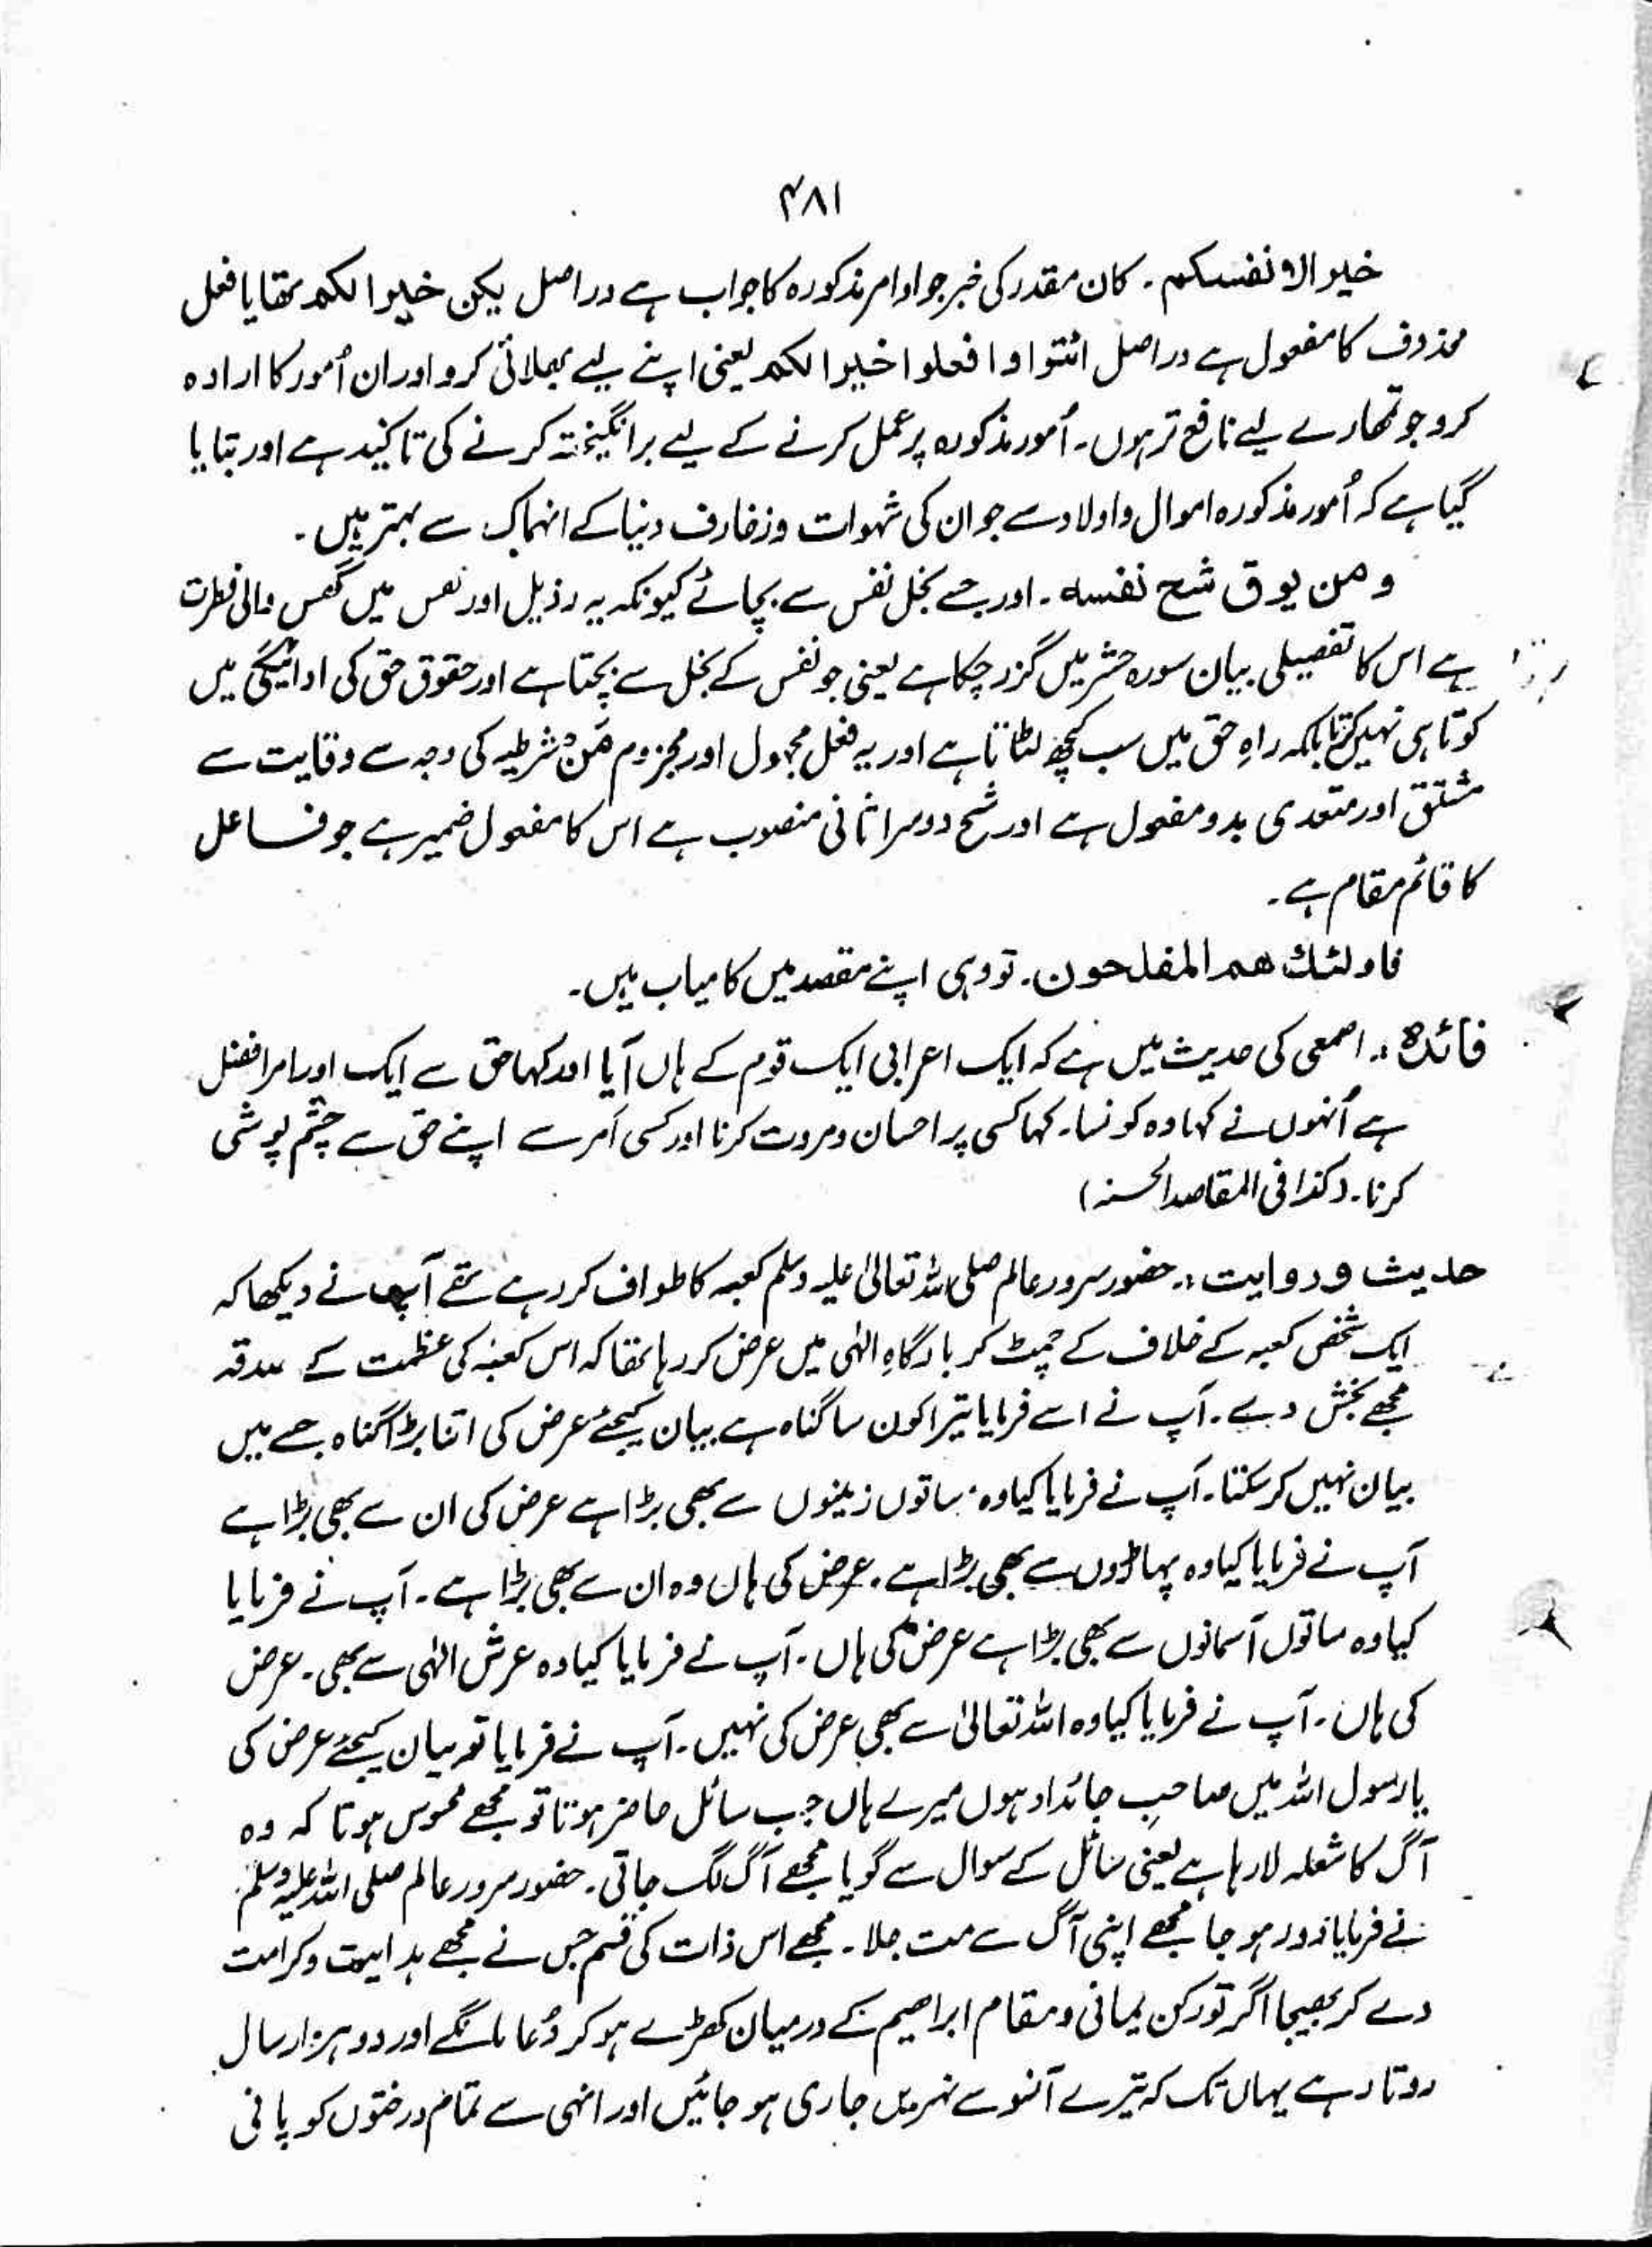 ۴۸۱
خیرا لانفسکم ۔ کان مقدر کی خبر جو اوامر مذکورہ کا جواب ہے دراصل یکن خیرا لکم تھا یا فعل
محذوف کا مفعول ہے دراصل ائتوا او افعلوا خیرا لکم یعنی اپنے لیے بھلائی کرو اور ان اُمور کا ارادہ
کرو جو تمھارے لیے نافع تر ہوں۔ اُمور مذکورہ پر عمل کرنے کے لیے برانگیختہ کرنے کی تاکید ہے اور بتایا
گیا ہے کہ اُمور مذکورہ اموال و اولاد سے جو ان کی شہوات و زخارف دنیا کے انہماک سے بہتر ہیں ۔
ومن یوق شح نفسہ ۔ اور جسے بخل نفس سے بچائے کیونکہ یہ رذیل اور نفس میں گھس والی فطرت
ہے اس کا تفصیلی بیان سورہ حشر میں گزر چکا ہے یعنی جو نفس کے بخل سے بچتا ہے اور حقوق حق کی ادائیگی میں
کوتاہی نہیں کرتا بلکہ راہِ حق میں سب کچھ لٹاتا ہے اور یہ فعل مجہول اور مجزوم مَنْ شرطیہ کی وجہ سے وقایت سے
مشتق اور متعدی بدو مفعول ہے اور شح دوسرا ثانی منصوب ہے اس کا مفعول ضمیر ہے جو فاعل
کا قائم مقام ہے ۔
فاولئک ھم المفلحون۔ تو وہی اپنے مقصد میں کامیاب ہیں۔
فائدہ :۔ اصمعی کی حدیث میں ہے کہ ایک اعرابی ایک قوم کے ہاں آیا اور کہا حق سے ایک اور امر افضل
ہے اُنہوں نے کہا وہ کونسا۔ کہا کسی پر احسان و مروت کرنا اور کسی اَمر سے اپنے حق سے چشم پوشی
کرنا۔ (کذا فی المقاصد الحسنہ)
حدیث و روایت :۔ حضور سرور عالم صلی اللہ تعالیٰ علیہ وسلم کعبہ کا طواف کر رہے تھے آپ نے دیکھا کہ
ایک شخص کعبہ کے خلاف کے چمٹ کر بارگاہِ الٰہی میں عرض کر رہا تھا کہ اس کعبہ کی عظمت کے صدقہ
مجھے بخش دے ۔ آپ نے اسے فرمایا تیرا کون سا گناہ ہے بیان کیجئے عرض کی اتنا بڑا گناہ جسے میں
بیان نہیں کر سکتا۔ آپ نے فرمایا کیا وہ ساتوں زمینوں سے بھی بڑا ہے عرض کی ان سے بھی بڑا ہے
آپ نے فرمایا کیا وہ پہاڑوں سے بھی بڑا ہے ۔ عرض کی ہاں وہ ان سے بھی بڑا ہے ۔ آپ نے فرمایا
کیا وہ ساتوں آسمانوں سے بھی بڑا ہے عرض کی ہاں ۔ آپ نے فرمایا کیا وہ عرش الٰہی سے بھی ۔ عرض
کی ہاں ۔ آپ نے فرمایا کیا وہ اللہ تعالیٰ سے بھی عرض کی نہیں ۔ آپ نے فرمایا تو بیان کیجئے عرض کی
یا رسول اللہ میں صاحبِ جائداد ہوں میرے ہاں جب سائل حاضر ہوتا تو مجھے محسوس ہوتا کہ وہ
آگ کا شعلہ لا رہا ہے یعنی سائل کے سوال سے گویا مجھے آگ لگ جاتی ۔ حضور سرور عالم صلی اللہ علیہ وسلم
نے فرمایا دور ہو جا مجھے اپنی آگ سے مت جلا ۔ مجھے اس ذات کی قسم جس نے مجھے ہدایت و کرامت
دے کر بھیجا اگر تو رکن یمانی و مقام ابراھیم کے درمیان کھڑے ہو کر دُعا مانگے اور دو ہزار سال
روتا رہے یہاں تک کہ تیرے آنسو سے نہریں جاری ہو جائیں اور انہی سے تمام درختوں کو پانی